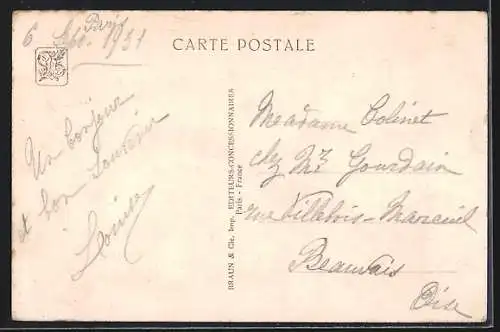 Paris
6 Sept. 1931
CARTE POSTALE
Un bonjour
et bon souvenir
Louise
BRAUN & Cie, Imp. EDITEURS-CONCESSIONNAIRES
Paris - France
Madame Colinet
chez Mr Gourdain
rue Villebois-Mareuil
Beauvais
Oise